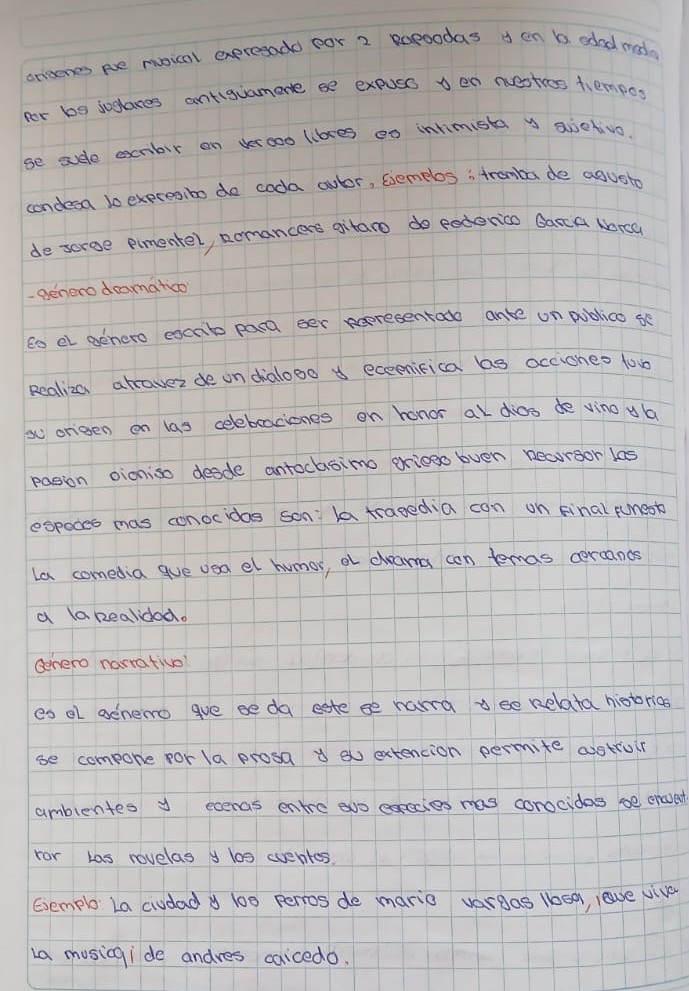 origenes fue musical expresado por 2 rapsodas y en la edad media
Por los juglares antiguamente se expuso y en nuestros tiempos
se sude escribir en versoo libres es intimista y sujetivo.
condesa lo expresibo de cada autor, Ejemplos : tromba de agusto
de Jorge Pimentel, Romancero gitano de Federico Garcia Lorca
-género dramático
Es el género escrito para ser representado ante un publico se
Realiza atravez de un dialogo y ecenifica las acciones tubo
su origen en las celebraciones en honor al dios de vino y la
pasion Dioniso desde antoclasimo griego buen Recursor las
especies mas conocidas son: la tragedia con un final funesto
La comedia que usa el humor, el drama con temas cercanos
a la Realidad.
Género narrativo
es el génerro que se da este se narra y se Relata historias
se compone por la prosa y su extencion permite costruir
ambientes y ecenas entre sus especies mas conocidas se encuent
ran Las novelas y los cuentos.
Ejemplo: La ciudad y los Perros de mario vargas llosa, ¡que viva
La musica¡ de andres caicedo.